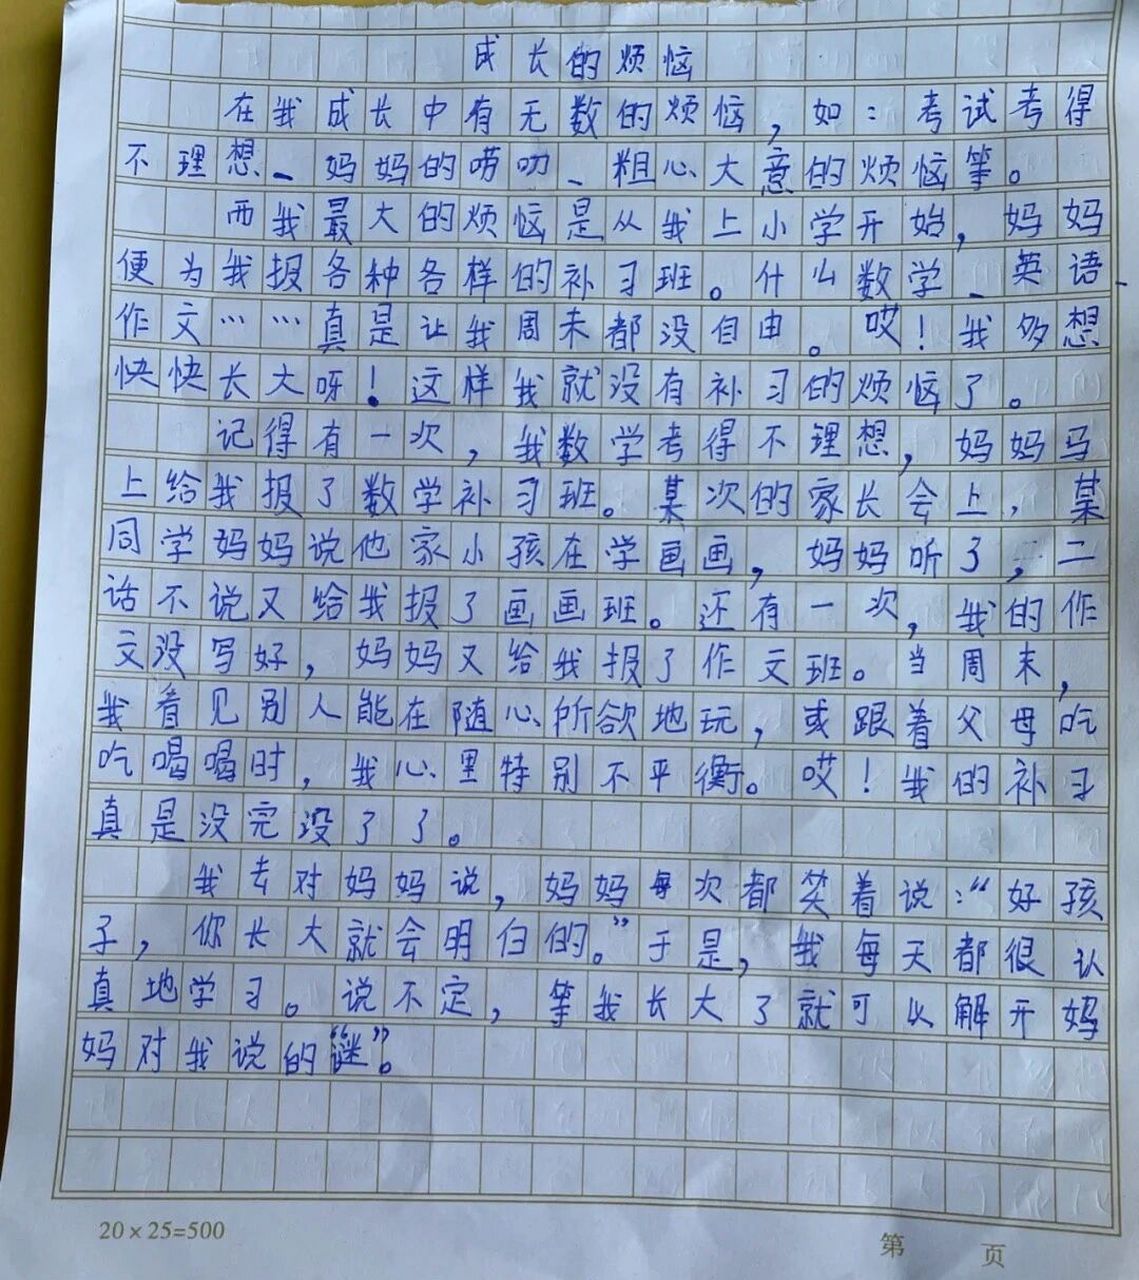 成长的烦恼
在我成长中有无数的烦恼，如：考试考得
不理想、妈妈的唠叨、粗心大意的烦恼等。
而我最大的烦恼是从我上小学开始，妈妈
便为我报各种各样的补习班。什么数学、英语、
作文……真是让我周末都没自由。哎！我多想
快快长大呀！这样我就没有补习的烦恼了。
记得有一次，我数学考得不理想，妈妈马
上给我报了数学补习班。某次的家长会上，某
同学妈妈说他家小孩在学画画，妈妈听了，二
话不说又给我报了画画班。还有一次，我的作
文没写好，妈妈又给我报了作文班。当周末，
我看见别人能在随心所欲地玩，或跟着父母吃
吃喝喝时，我心里特别不平衡。哎！我的补习
真是没完没了了。
我去对妈妈说，妈妈每次都笑着说：“好孩
子，你长大就会明白的。”于是，我每天都很认
真地学习。说不定，等我长大了就可以解开妈
妈对我说的“谜”。
20×25=500
第 页